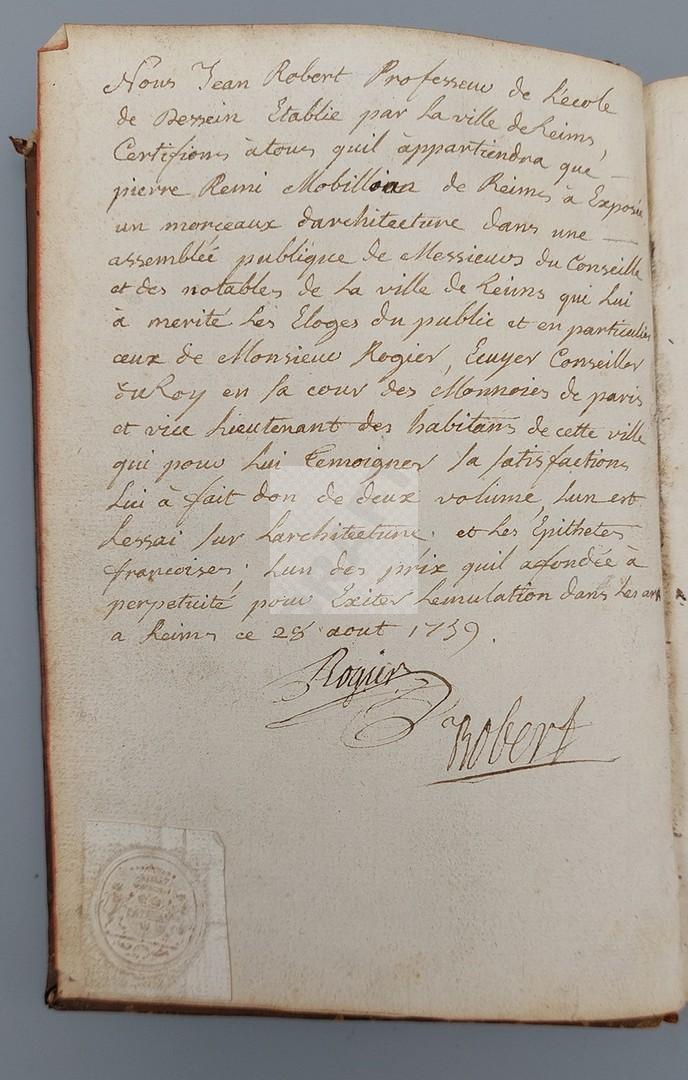 Nous Jean Robert Professeur de L'ecole
de Dessein Etablie par La ville de Reims,
Certifions à tous quil àppartiendra que
pierre Remi Mobillion de Reims à Exposée
un morceaux darchitecture dans une
assemblée publique de Messieurs du Conseille
et des notables de La ville de Reims qui Lui
à merité Les Eloges du public et en particulier
ceux de Monsieur Rogier, Ecuyer Conseiller
du Roy en Sa cour des Monnoies de paris
et vice Lieutenant des habitans de cette ville
qui pour Lui Temoigner Sa Satisfactions
Lui à fait don de deux volume, Lun est
Lessai Sur Larchitecture. et Les Epithetes
françoises; Lun des prix quil afondée à
perpetuité, pour Exiter Lemulation dans Les art
a Reims ce 28 aout 1759.
Rogier
Robert